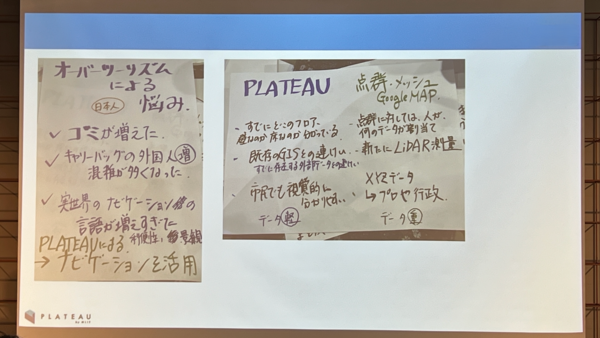 オーバーツーリズム
による
日本人
悩み.
✓ ゴミが増えた.
✓ キャリーバッグの外国人増
混雑が多くなった.
✓ 実世界のナビゲーション
言語が増えすぎた
PLATEAUによる 利便性
→ ナビゲーションを活用
PLATEAU
- すでにどこのフロア、
のか分かっている.
- 既存のGISとの連けい.
すでに存在する外部データとの連けい.
- 市民でも視覚的に
分かりやすい.
データ 軽
点群・メッシュ
Google MAP.
- 点群に対しては、人が、
何のデータか割り当て
- 新たにLiDAR測量
メタデータ
↳ プロや行政.
データ 重
PLATEAU